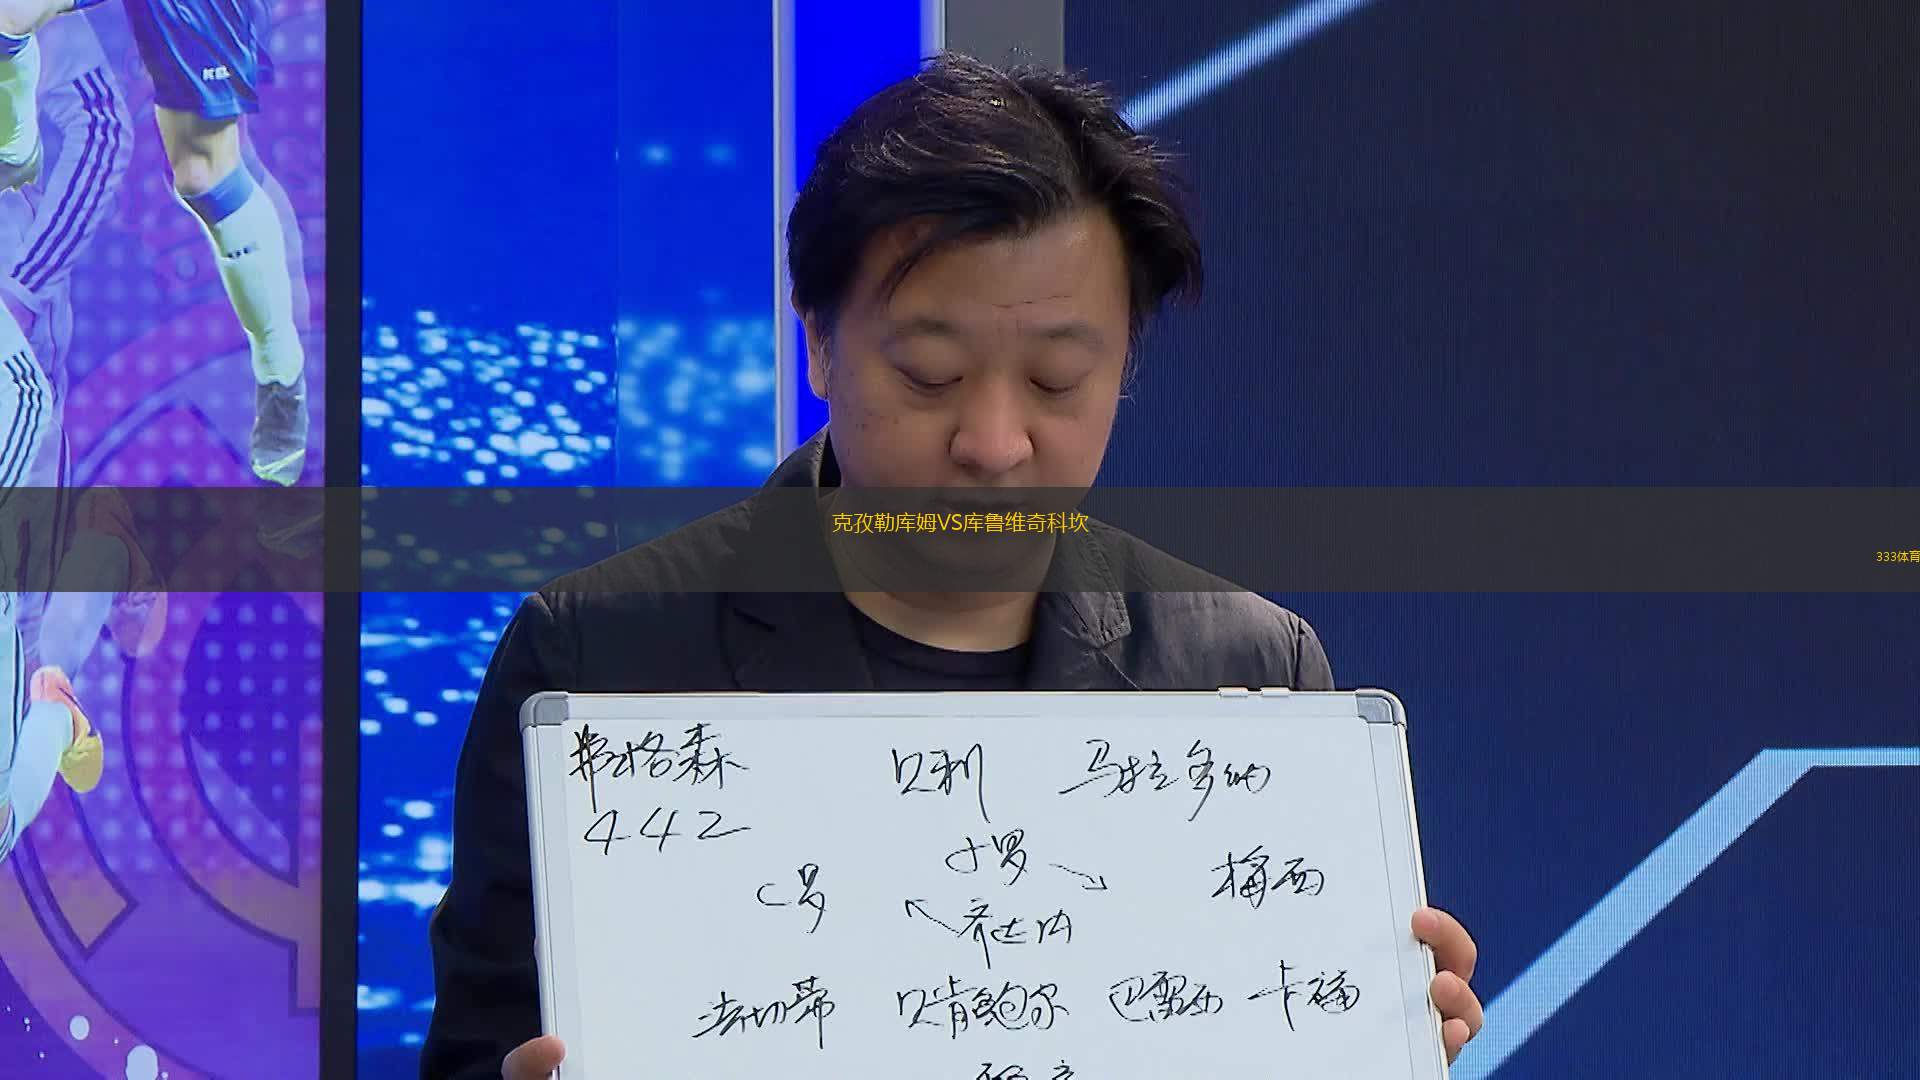 克孜勒库姆VS库鲁维奇科坎
333体育
弗格森 贝利 马拉多纳
442
小罗
C罗 梅西
齐达内
法切蒂 贝肯鲍尔 巴雷西 卡福